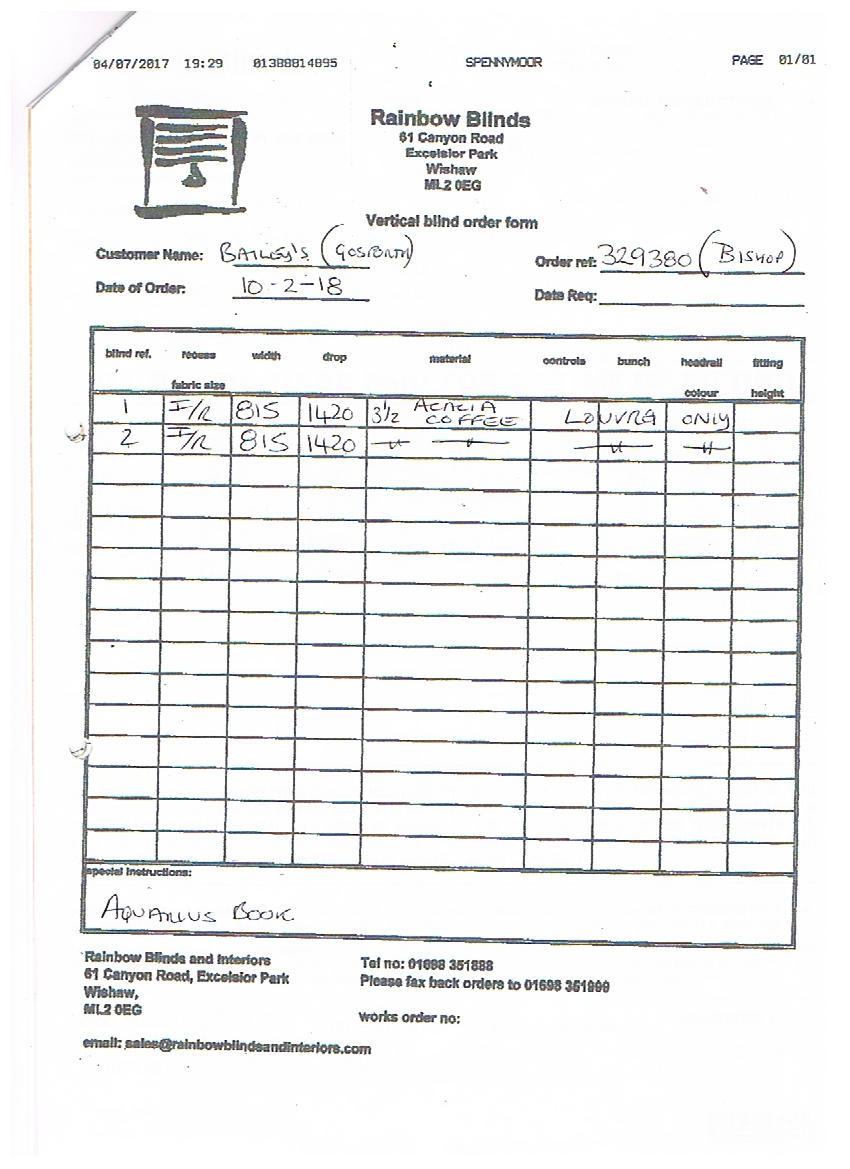 04/07/2017 19:29 01388814895 SPENNYMOOR PAGE 01/01
Rainbow Blinds
61 Canyon Road
Excelsior Park
Wishaw
ML2 0EG
Vertical blind order form
Customer Name: BAILEY'S (GOSFORTH)
Order ref: 329380 (BISHOP)
Date of Order: 10-2-18
Date Req:
blind ref. recess width drop material controls bunch headrail fitting
fabric size colour height
1 I/R 815 1420 3½ ACACIA COFFEE LOUVRE ONLY
2 I/R 815 1420 —〃— —〃— —〃— —〃—
special instructions:
AQUARIUS BOOK
Rainbow Blinds and Interiors
61 Canyon Road, Excelsior Park
Wishaw,
ML2 0EG
Tel no: 01698 351888
Please fax back orders to 01698 351999
works order no:
email: sales@rainbowblindsandinteriors.com